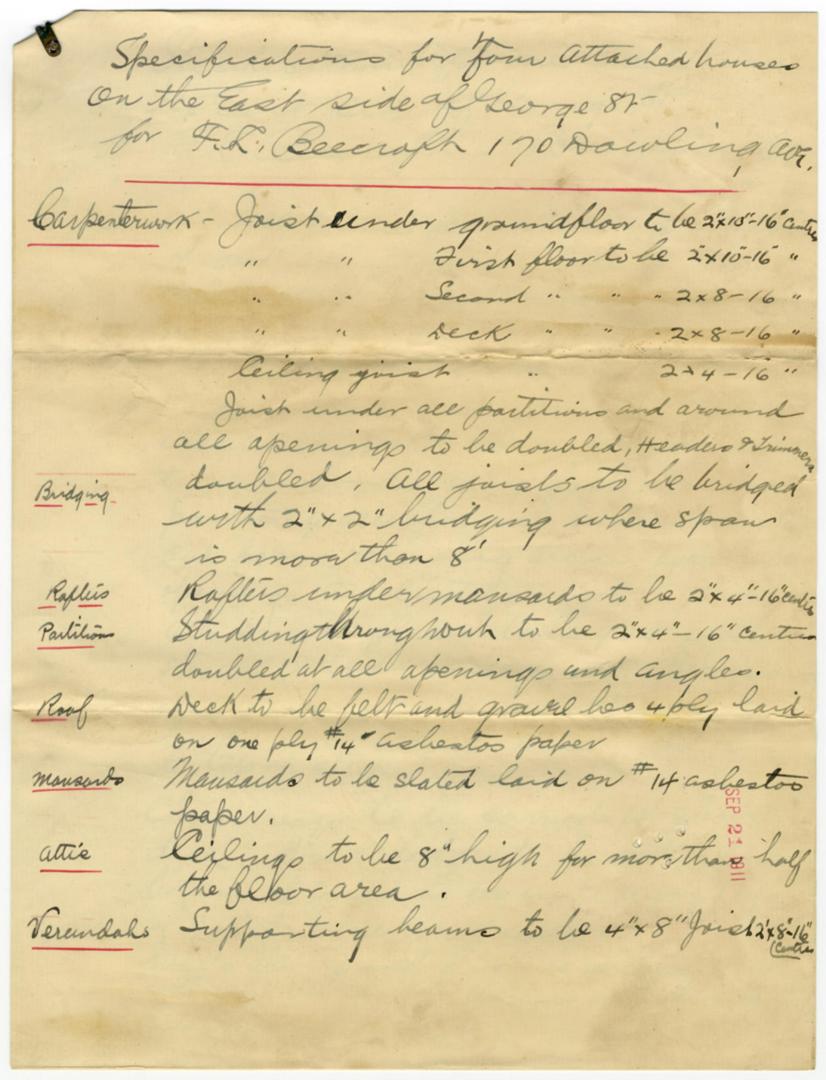 Specifications for Four Attached houses
On the East side of George St
for F.L. Beecroft 170 Dowling Ave.
Carpenterwork - Joist under groundfloor to be 2"x10"-16" Centres
" " First floor to be 2"x10"-16 "
" " Second " " " 2x8-16 "
" " Deck " " " 2x8-16 "
Ceiling joist " 2x4-16 "
Joist under all partitions and around
all openings to be doubled, Headers & Trimmers
Bridging doubled. All joists to be bridged
with 2"x2" bridging where span
is more than 8'
Rafters Rafters under mansards to be 2"x4"-16" centres
Partitions Studding throughout to be 2"x4"-16" centres
doubled at all openings and angles.
Roof Deck to be felt and gravel 4 ply laid
on one ply #14 asbestos paper
Mansards Mansards to be slated laid on #14 asbestos
paper.
SEP 21 1911
Attic Ceilings to be 8" high for more than half
the floor area.
Verandahs Supporting beams to be 4"x8" Joist 2"x8"-16"
Centres